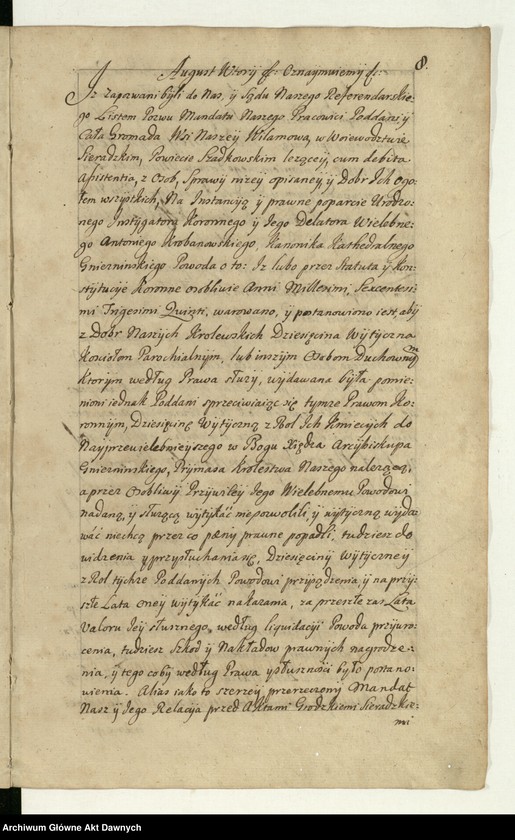 8.
August Wtory etc. Oznaymuiemy etc.
Iz Zapozwani byli do Nas, y Sądu Naszego Referendarskie-
go Listem Pozwu Mandatu Naszego Pracowici Poddani y
Cała Gromada Wsi Naszey Wilamowa, w Woiewodztwie
Sieradzkim, Powiecie Szadkowskim lezącey, cum debita
Assistentia, z Osob, Sprawy nizey opisaney, y Dobr Ich Ogo-
łem wszystkich, Na Instancyją y prawne poparcie Urodzo-
nego Instygatora Koronnego y Jego Delatora Wielebne-
go Antoniego Krobanowskiego, Kanonika Kathedralnego
Gniezninskiego Powoda o to: Iz lubo przez Statuta y Kon-
stytucyje Koronne osobliwie Anni Millesimi, Sexcentesi-
mi Trigesimi Quinti, warowano, y postanowiono iest, aby
z Dobr Naszych Krolewskich Dziesięcina Wytyczna
Kosciołom Parochialnym, lub inszym Osobom Duchownym
ktorym według Prawa słuzy, wydawana była pomie-
nioni iednak Poddani sprzeciwiaiąc się tymze Prawom Ko-
ronnym, Dziesięcinę Wytyczną z Rol Ich Kmiecych do
Nayprzewielebnieyszego w Bogu Xiędza Arcybiskupa
Gniezninskiego, Prymasa Krolestwa Naszego nalezącą,
a przez Osobliwy Przywiley Jego Wielebnemu Powodowi
nadaną, y słuzącą wytykać niepozwolili, y wytyczną wyda-
wać niechcą przez co pæny prawne popadli, tudziesz do
widzenia y przysłuchania się, Dziesięciny Wytyczney
z Rol tychze Poddanych Powodowi przysądzenia y na przy-
szłe Lata oney wytykać nakazania, za przeszłe zas Lata
Valoru Jey słusznego według liquidacyi Powoda przywro-
cenia, tudziesz Szkod y Nakładow prawnych nagrodze-
nia, y tego coby według Prawa y słusznosci było postano-
wienia. Alias iako to szerzey przerzeczony Mandat
Nasz y Jego Relacyja przed Aktami Grodzkiemi Sieradzkie-
mi
Archiwum Główne Akt Dawnych